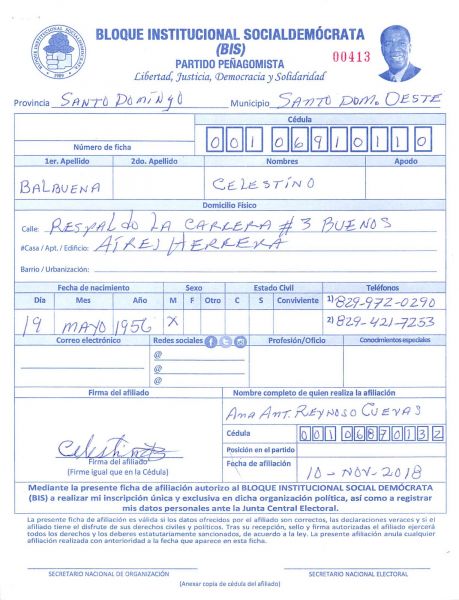 BLOQUE INSTITUCIONAL SOCIALDEMÓCRATA
(BIS)
00413
PARTIDO PEÑAGOMISTA
Libertad, Justicia, Democracia y Solidaridad
Provincia SANTO DOMINGO Municipio SANTO DOM. OESTE
Cédula
Número de ficha 00106910110
1er. Apellido 2do. Apellido Nombres Apodo
BALBUENA CELESTINO
Domicilio Físico
Calle: RESPALDO LA CARRERA #3 BUENOS
#Casa / Apt. / Edificio: AIRES HERRERA
Barrio / Urbanización:
Fecha de nacimiento Sexo Estado Civil Teléfonos
Día Mes Año M F Otro C S Conviviente 1) 829-972-0290
19 MAYO 1956 X 2) 829-421-7253
Correo electrónico Redes sociales Profesión/Oficio Conocimientos especiales
@
@
@
Firma del afiliado Nombre completo de quien realiza la afiliación
ANA ANT. REYNOSO CUEVAS
Cédula 00106870132
Celestino
Firma del afiliado
(Firme igual que en la Cédula)
Posición en el partido
Fecha de afiliación
10-NOV-2018
Mediante la presente ficha de afiliación autorizo al BLOQUE INSTITUCIONAL SOCIAL DEMÓCRATA
(BIS) a realizar mi inscripción única y exclusiva en dicha organización política, así como a registrar
mis datos personales ante la Junta Central Electoral.
La presente ficha de afiliación es válida si los datos ofrecidos por el afiliado son correctos, las declaraciones veraces y si el
afiliado tiene el disfrute de sus derechos civiles y políticos. Tras su recepción, sello y firma autorizadas el afiliado ejercerá
todos los derechos y los deberes estatutariamente sancionados, de acuerdo a la ley. La presente afiliación anula cualquier
afiliación realizada con anterioridad a la fecha que aparece en esta ficha.
SECRETARIO NACIONAL DE ORGANIZACIÓN SECRETARIO NACIONAL ELECTORAL
(Anexar copia de cédula del afiliado)